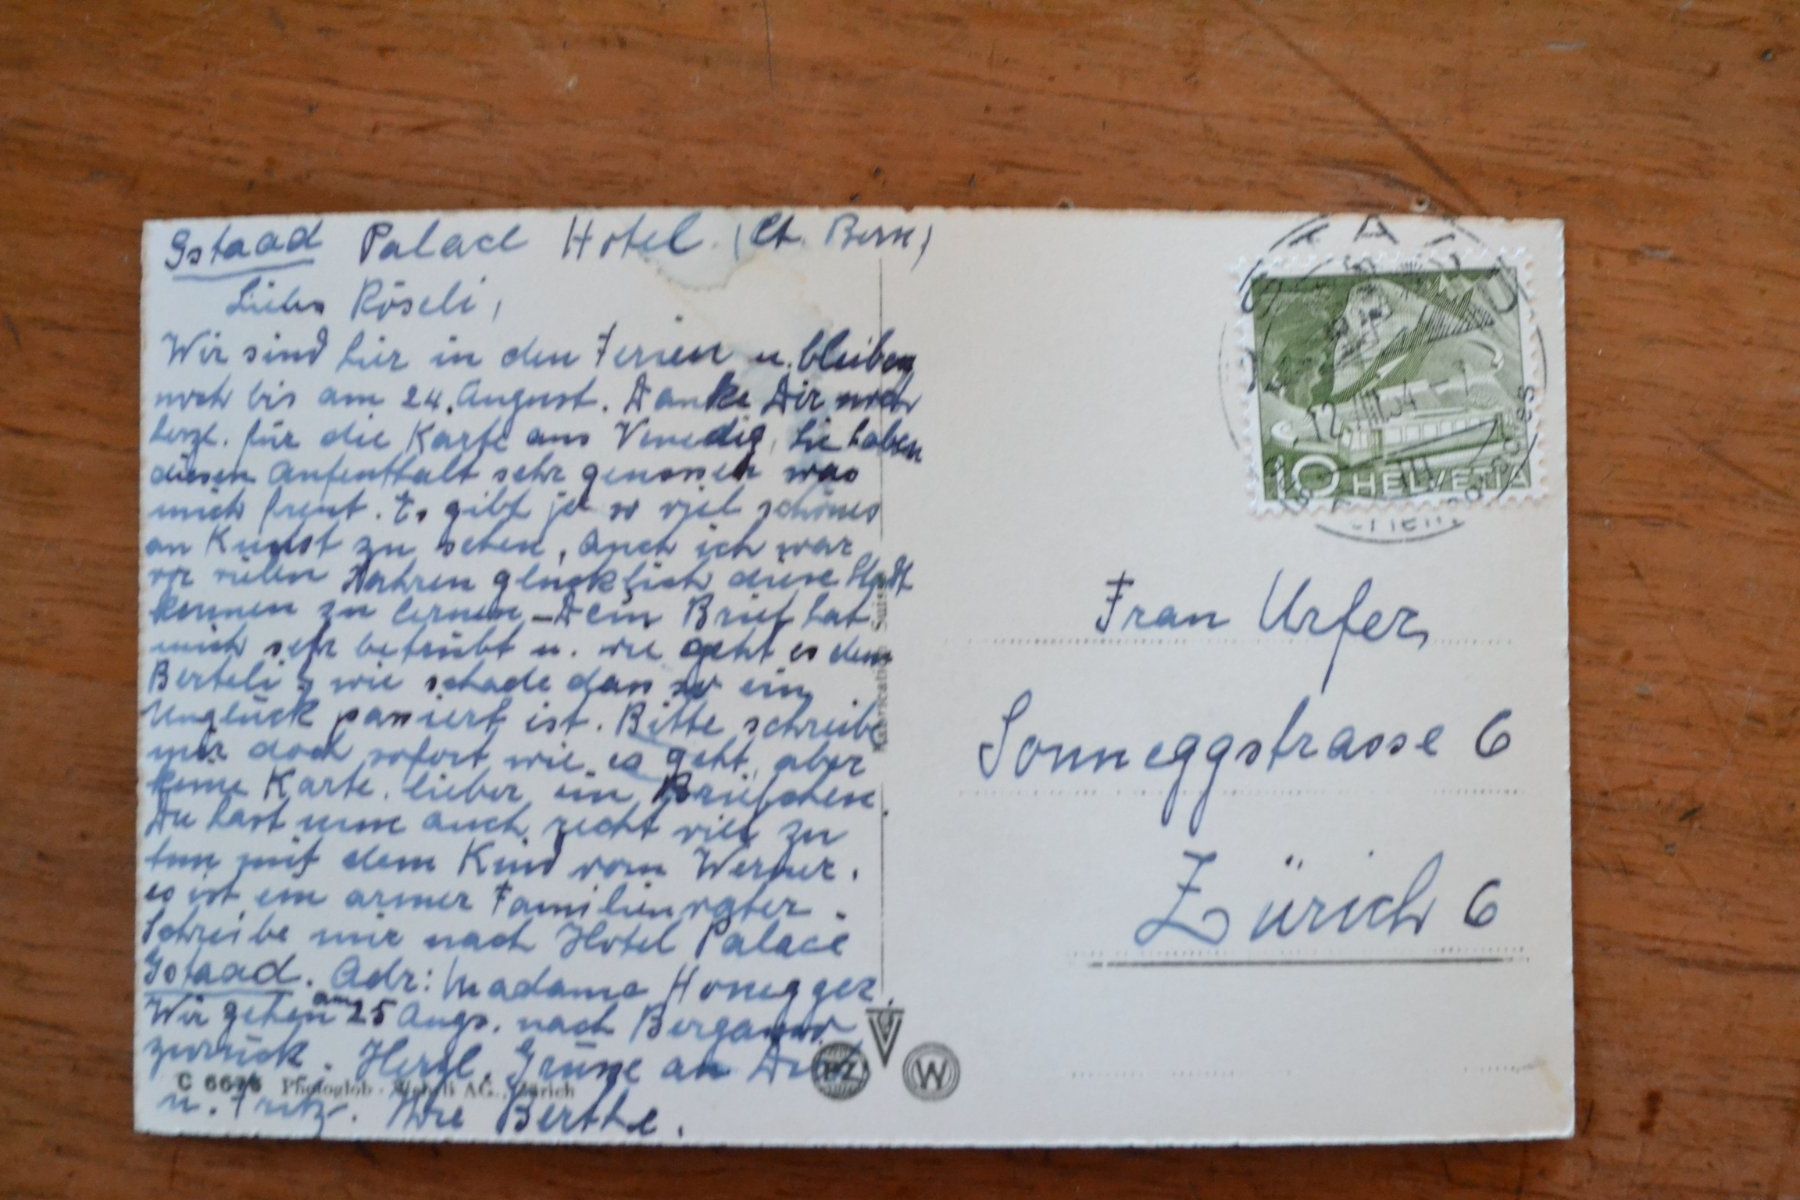 Gstaad Palace Hotel. (Ct. Bern)
Liebes Röseli,
Wir sind hier in den Ferien u. bleiben
noch bis am 24. August. Danke Dir noch
herzl. für die Karte aus Venedig, Sie haben
diesen Aufenthalt sehr genossen was
mich freut. Es gibt ja so viel schönes
an Kunst zu sehen, auch ich war
vor vielen Jahren glücklich diese Stadt
kennen zu lernen – Dein Brief hat
mich sehr betrübt u. wie geht es dem
Berteli, wie schade dass so ein
Unglück passiert ist. Bitte schreibe
mir doch sofort wie es geht, aber
keine Karte, lieber ein Briefchen.
Du hast nun auch recht viel zu
tun mit dem Kind vom Werner.
es ist ein armer Familienvater.
Schreibe mir nach Hotel Palace
Gstaad. Adr: Madame Honegger.
Wir gehen am 25 Augs. nach Bergamo
zurück. Herzl. Grüsse an Dich
u. Fritz. Ihre Berthe.
C 6676 Photoglob - Wehrli AG., Zürich
PZ
W
Suisse
GSTAAD
12.VIII.54
10 HELVETIA
Frau Urfer,
Sonneggstrasse 6
Zürich 6